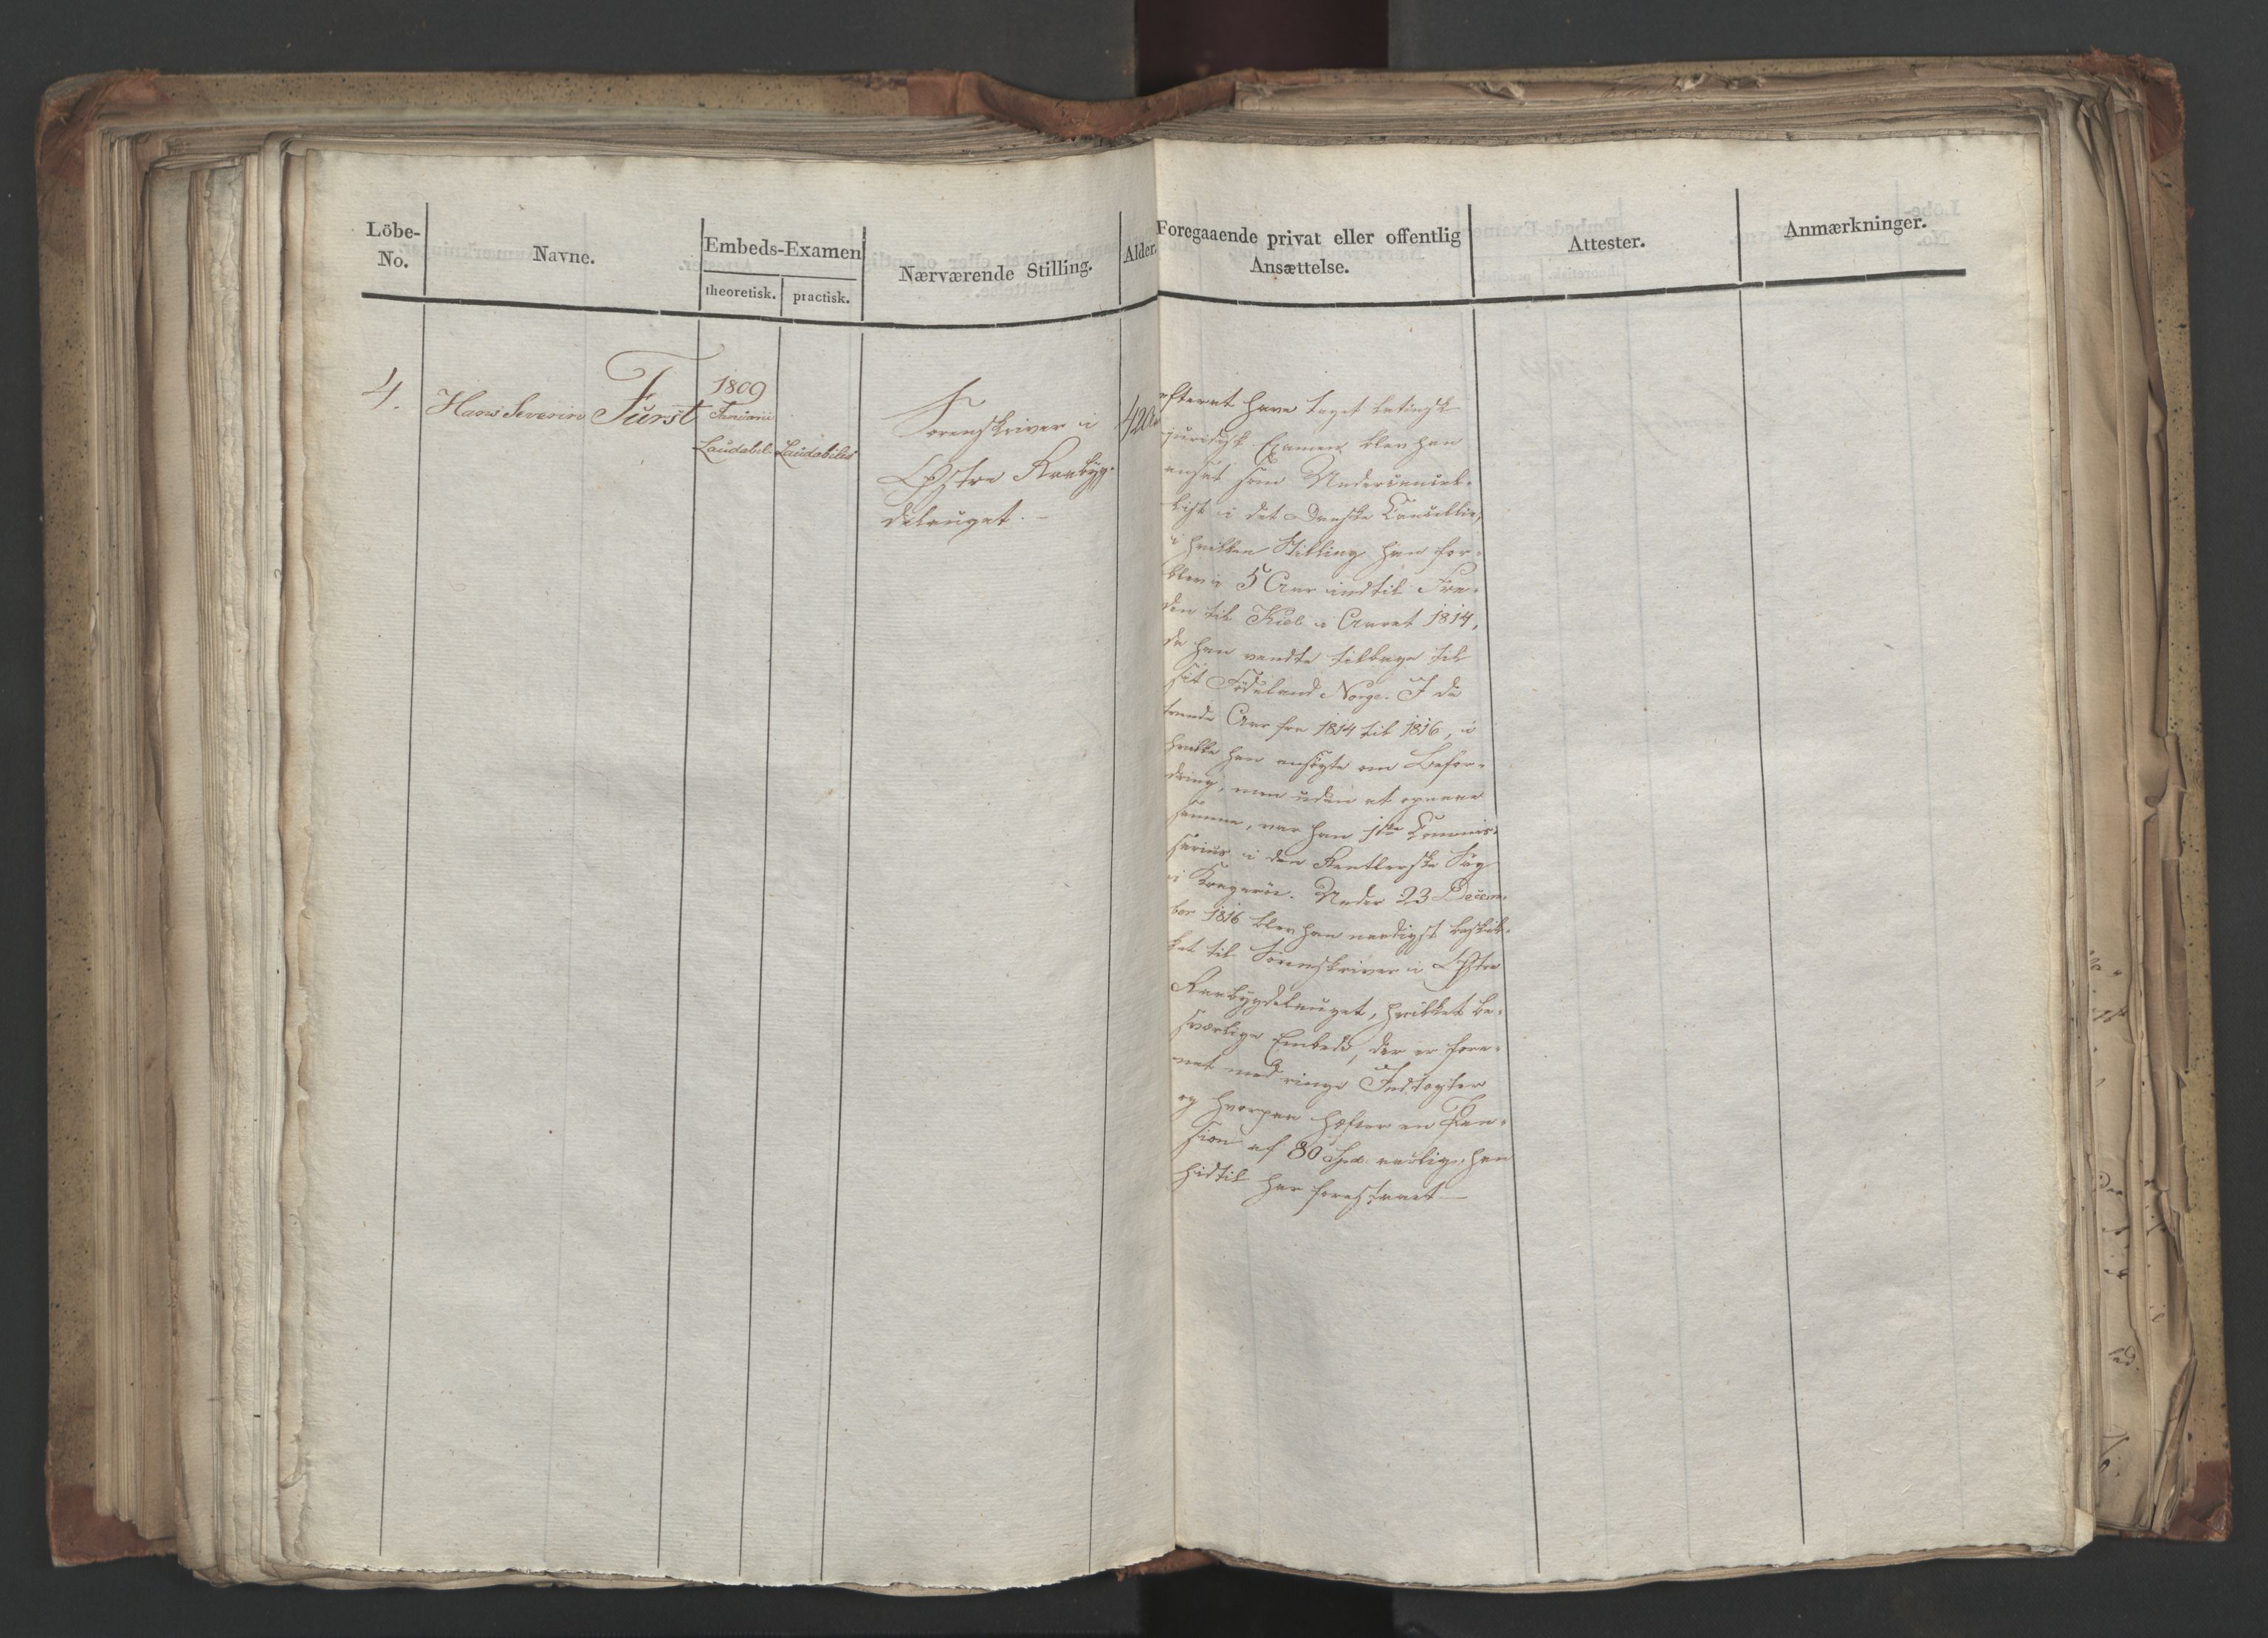 Löbe-
No.
Navne.
Embeds-Examen
theoretisk.
practisk.
Nærværende Stilling.
Alder.
Foregaaende privat eller offentlig
Ansættelse.
Attester.
Anmærkninger.
4.
Hans Severin Fürst
1809
Januarii
Laudabil:
Laudabilis
Sorenskriver i
Østre Raabyg-
delauget. –
42
efterat have taget latinsk
juridisk Examen blev han
ansat som Undercancel-
list i det Danske Cancellie,
i hvilken Stilling han for-
blev i 5 Aar indtil Fre-
den til Kiel i Aaret 1814,
da han vendte tilbage til
sit Födeland Norge. I de
trende Aar fra 1814 til 1816, i
hvilke han ansögte om Befor-
dring, men uden at opnaae
samme, var han 1ste Commis-
sarius i den Sag
i Krageröe. Under 23 Decem-
ber 1816 blev han naadigst beskik-
ket til Sorenskriver i Østre
Raabygdelauget, hvilket be-
sværlige Embede, der er fore-
net med ringe Indtægter
og hvorpaa hæfter en Pen-
sion af 80 Spd. aarlig, han
hidtil har forestaaet –